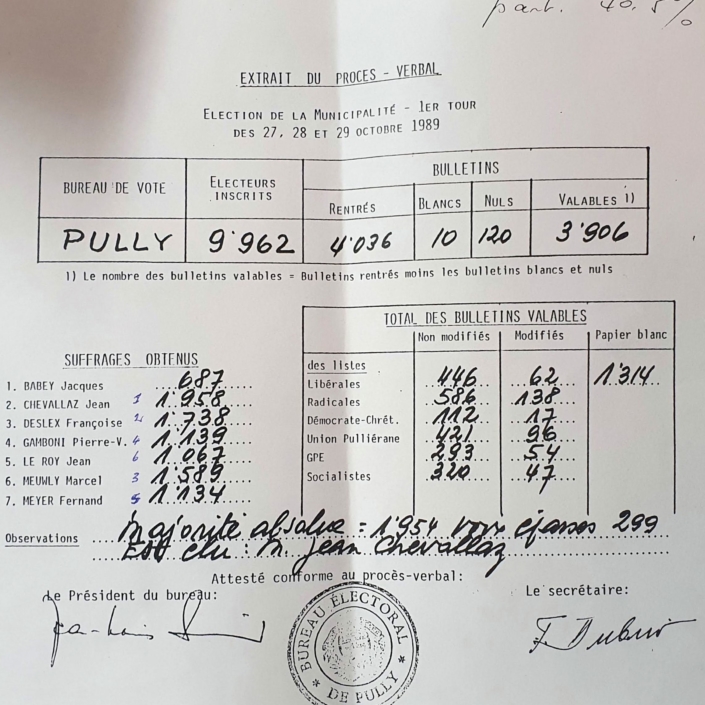 part. 40.5%
EXTRAIT DU PROCES - VERBAL
ELECTION DE LA MUNICIPALITÉ - 1ER TOUR
DES 27, 28 ET 29 OCTOBRE 1989
BUREAU DE VOTE ELECTEURS INSCRITS BULLETINS
RENTRÉS BLANCS NULS VALABLES 1)
PULLY 9'962 4'036 10 120 3'906
1) Le nombre des bulletins valables = Bulletins rentrés moins les bulletins blancs et nuls
SUFFRAGES OBTENUS
1. BABEY Jacques 687
2. CHEVALLAZ Jean 1 1'958
3. DESLEX Françoise 2 1'738
4. GAMBONI Pierre-V. 4 1'139
5. LE ROY Jean 6 1'067
6. MEUWLY Marcel 3 1'589
7. MEYER Fernand 5 1'134
TOTAL DES BULLETINS VALABLES
Non modifiés Modifiés Papier blanc
des listes
Libérales 446 62 1'314
Radicales 586 138
Démocrate-Chrét. 112 17
Union Pulliérane 421 96
GPE 293 54
Socialistes 320 47
Observations Majorité absolue = 1'954 voix éparses 299
Est élu : M. Jean Chevallaz
Attesté conforme au procès-verbal:
Le Président du bureau: Le secrétaire:
BUREAU ÉLECTORAL
* DE PULLY *